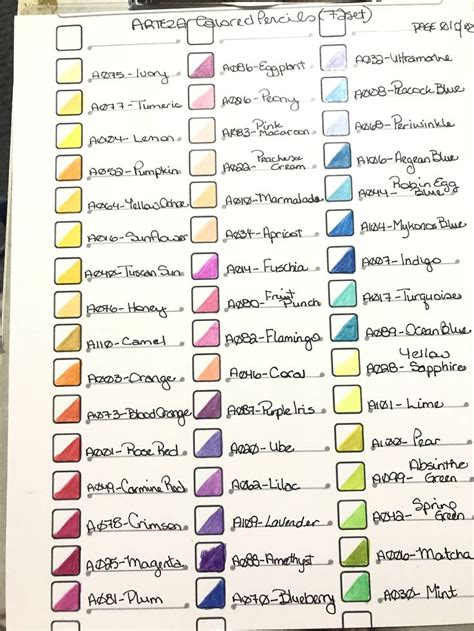 ARTEZA Colored Pencils (72set)
A075-Ivory
A077-Tumeric
A004-Lemon
A052-Pumpkin
A064-Yellow Ochre
A016-Sunflower
A040-Tuscan Sun
A076-Honey
A110-Camel
A003-Orange
A073-Blood Orange
A001-Rose Red
A049-Carmine Red
A078-Crimson
A025-Magenta
A081-Plum
A086-Eggplant
A026-Peony
A083-Pink Macaroon
A022-Peaches & Cream
A010-Marmalade
A034-Apricot
A014-Fuschia
A080-Fruit Punch
A082-Flamingo
A046-Coral
A087-Purple Iris
A020-Ube
A062-Lilac
A109-Lavender
A088-Amethyst
A070-Blueberry
A032-Ultramarine
A008-Peacock Blue
A068-Periwinkle
A106-Aegean Blue
A044-Robin Egg Blue
A104-Mykonos Blue
A007-Indigo
A017-Turquoise
A089-Ocean Blue
A028-Yellow Sapphire
A101-Lime
A100-Pear
A099-Absinthe Green
A042-Spring Green
A006-Matcha
A030-Mint